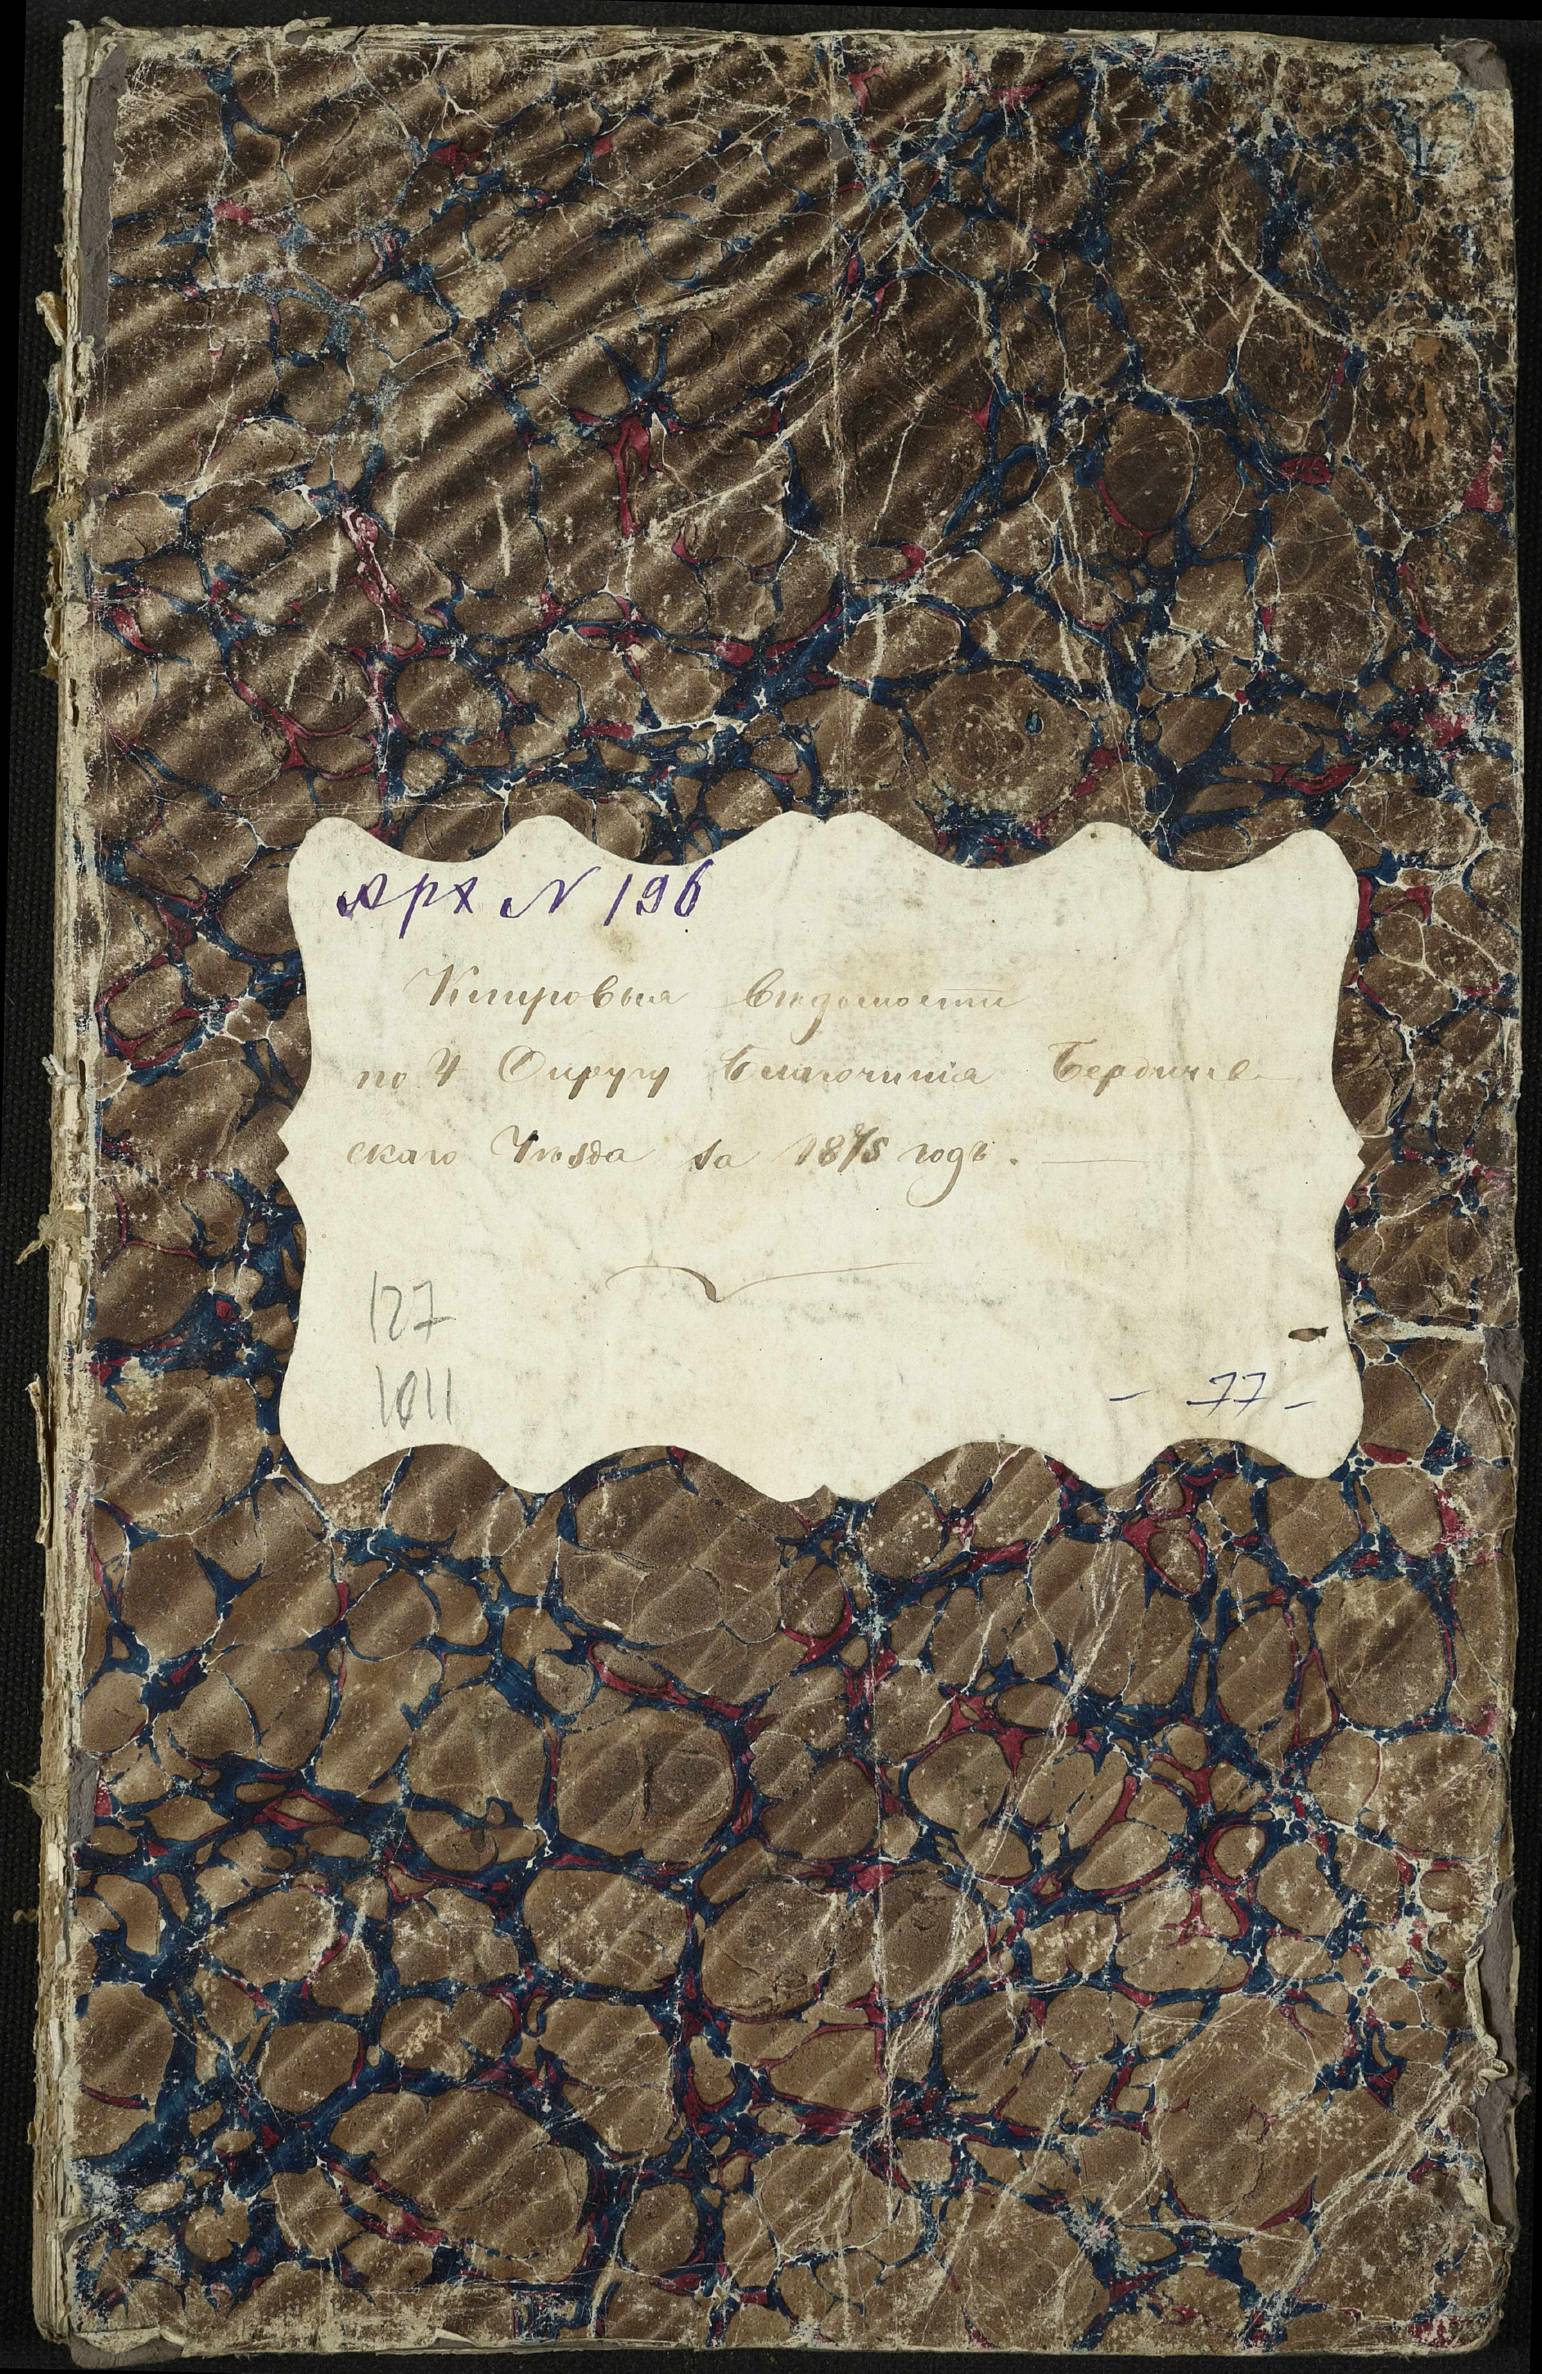 Арх N 196
Клировыя вѣдомости
по 4 Округу Благочинія Бердичев-
скаго Уѣзда за 1875 годъ. —
127
1011
- 77 -